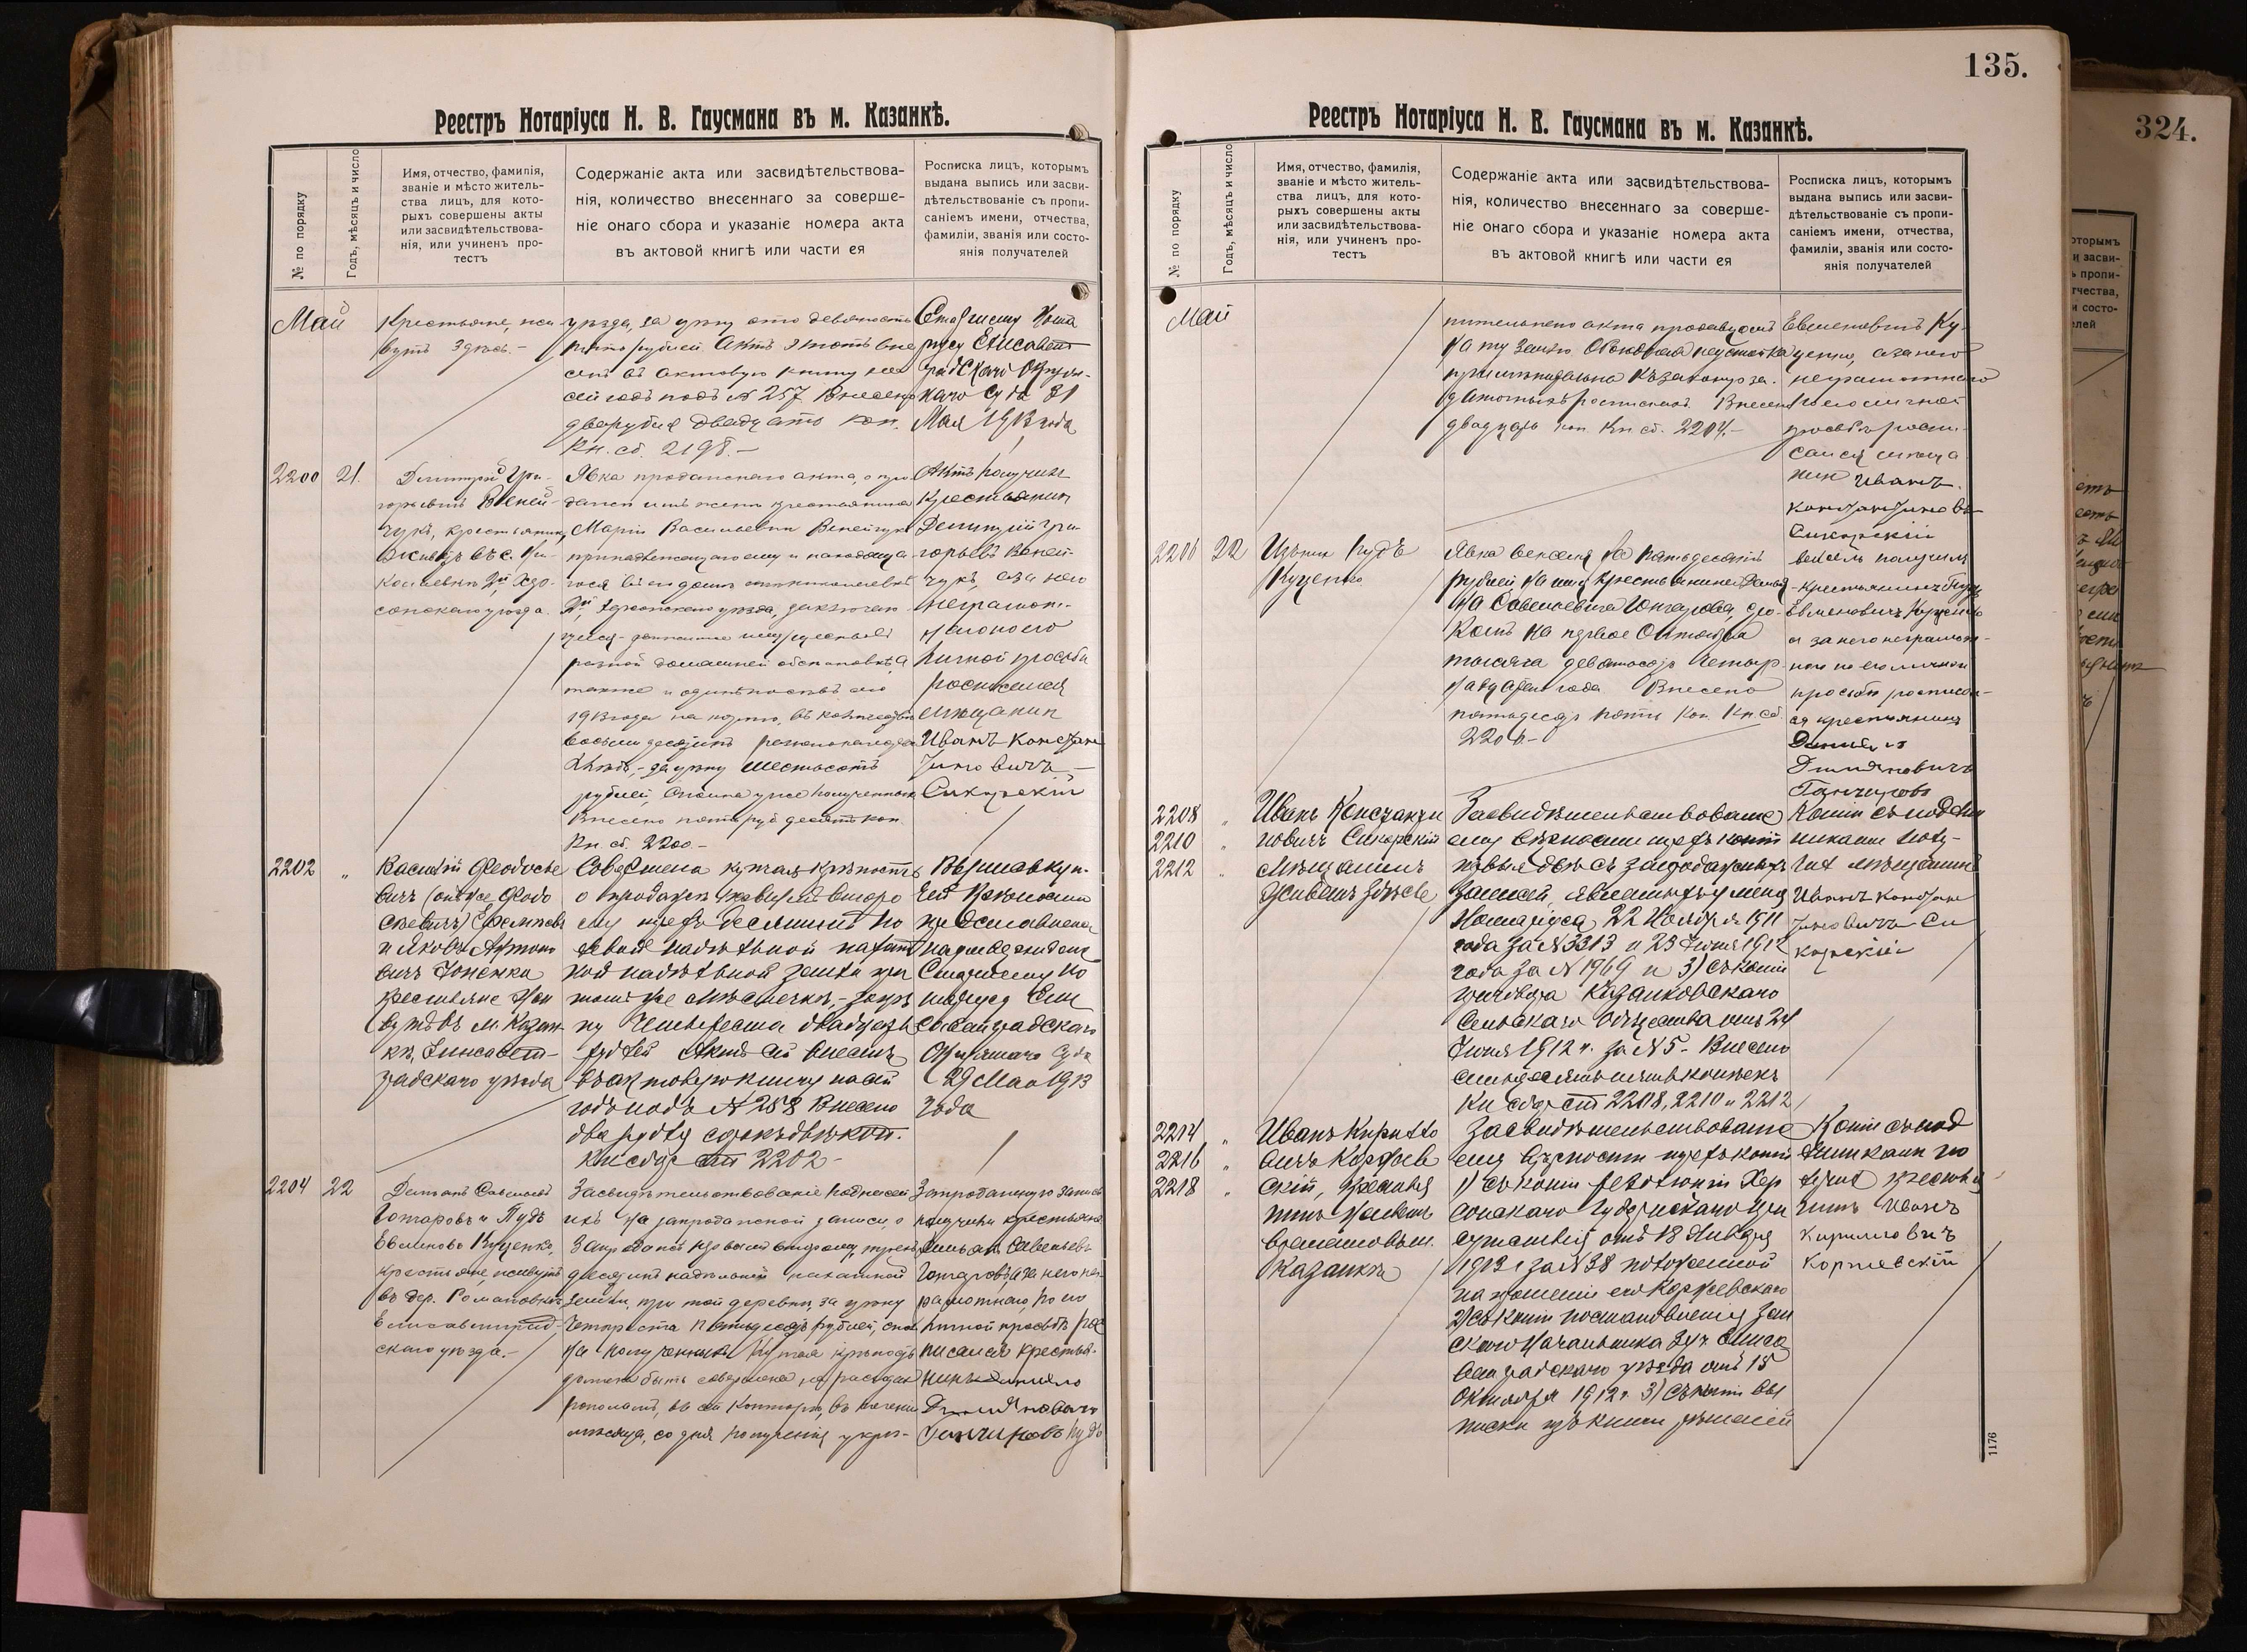 Реестръ Нотаріуса Н. В. Гаусмана въ м. Казанкѣ.
№ по порядку
Годъ, мѣсяцъ и число
Имя, отчество, фамилія,
званіе и мѣсто житель-
ства лицъ, для кото-
рыхъ совершены акты
или засвидѣтельствова-
нія, или учиненъ про-
тестъ
Содержаніе акта или засвидѣтельствова-
нія, количество внесеннаго за соверше-
ніе онаго сбора и указаніе номера акта
въ актовой книгѣ или части ея
Росписка лицъ, которымъ
выдана выпись или засви-
дѣтельствованіе съ пропи-
саніемъ имени, отчества,
фамиліи, званія или состо-
янія получателей
Май
Крестьяне, жи-
вутъ здѣсь.-
уѣзда, за цѣну сто девяносто
пять рублей. Актъ этотъ вне
сенъ въ актовую книгу на
сей годъ подъ № 257. Внесено
два рубля двадцать коп.
Кн. сб. 2198.-
Старшему Нота
ріусу Елисавет
градскаго Окруж-
наго Суда 31
Мая 1913 года
2200
21.
Димитрій Гри-
горьевичъ Веней-
чукъ, крестьянинъ
Явка продажнаго акта, о про
дажѣ имъ женѣ крестьянина
Маріи Васильевнѣ Венейчукъ
принадлежащаго ему и находяща
гося
Херсонскаго уѣзда,
разной домашней обстановки, а
также и
1913 года
за цѣну шестьсотъ
рублей,
Внесено пять руб. десять коп.
Кн. сб. 2200.-
Актъ получилъ
крестьянинъ
Димитрій Гри-
горьевъ Веней-
чукъ, а за него
неграмот-
наго по его
личной просьбѣ
росписался
мѣщанинъ
Иванъ Констан
тиновичъ
Сикорскій
2202
"
Василій Феодосье
вичъ (онъ же Федо
сѣевичъ) Ефимовъ
и Яковъ
вичъ
крестьяне жи
вутъ въ м. Казан-
кѣ, Елисавет-
градскаго уѣзда
Совершена купчая крѣпость
о продажѣ первымъ второ
му трехъ десятинъ по
левой надѣльной пахат
ной надѣльной земли при
томъ же мѣстечкѣ, - за цѣ
ну четыреста двадцать
рублей Актъ сей внесенъ
въ актовую книгу на сей
годъ подъ № 258 Внесено
два рубля сорокъ двѣ коп.
Кн. сбор. ст. 2202-
Выпись куп-
чей крѣпости
представлена
на утвержденіе
Старшему Но
таріусу Ели
саветградскаго
Окружнаго Суда
29 Мая 1913
года
2204
22
Демьянъ Савельевъ
Гончаровъ и Пудъ
Евменовъ Куценко,
крестьяне, живутъ
въ дер. Романовкѣ
Елисаветград-
скаго уѣзда.-
Засвидѣтельствованіе подписей
ихъ на запродажной записи, о
запродажѣ первымъ второму, трехъ
десятинъ надѣльной пахатной
земли, при той деревнѣ, за цѣну
четыреста пятьдесятъ рублей,
Купчая крѣпость
должна быть совершена,
въ сей конторѣ, въ теченіи
мѣсяца, со дня полученія укрѣ-
Запродажную запись
получили крестьяне
Демьянъ Савельевъ
Гончаровъ, а за него не
грамотнаго, по его
личной просьбѣ рос
писался крестья-
нинъ Данило
Демьяновичъ
Ганчаровъ Пудъ
Реестръ Нотаріуса Н. В. Гаусмана въ м. Казанкѣ.
135.
№ по порядку
Годъ, мѣсяцъ и число
Имя, отчество, фамилія,
званіе и мѣсто житель-
ства лицъ, для кото-
рыхъ совершены акты
или засвидѣтельствова-
нія, или учиненъ про-
тестъ
Содержаніе акта или засвидѣтельствова-
нія, количество внесеннаго за соверше-
ніе онаго сбора и указаніе номера акта
въ актовой книгѣ или части ея
Росписка лицъ, которымъ
выдана выпись или засви-
дѣтельствованіе съ пропи-
саніемъ имени, отчества,
фамиліи, званія или состо-
янія получателей
Май
пительнаго акта продавцомъ
на ту землю. Обоюдная неустойка
применительно къ закону о за-
даточныхъ роспискахъ. Внесено
двадцать коп. Кн. сб. 2204.-
Евменовичъ Ку-
ценко, а за него
неграмотнаго
по его личной
просьбѣ роспи-
сался мѣща
нинъ Иванъ
Константиновъ
Сикорскій
2206
22
Пудъ
Куценко
Явка векселя на пятьдесятъ
рублей на имя крестьянина Демья-
на Савельевича Гончарова, сро-
комъ на первое Октября
тысяча девятьсотъ четыр-
надцатаго года. Внесено
пятьдесятъ пять коп. Кн. сб.
2206-
вексель получилъ
крестьянинъ Пудъ
Евменовичъ Куценко
а за него неграмот-
наго по его личной
просьбѣ росписал-
ся крестьянинъ
Данило
Демьяновичъ
Ганчаровъ
2208
2210
2212
"
"
"
Иванъ Константи
новичъ Сикорскій
мѣщанинъ
живетъ здѣсь
Засвидѣтельствованіе
ему вѣрности трехъ копій
первыя двѣ съ запродажныхъ
записей, явленныхъ у меня
Нотаріуса, 22 Ноября 1911
года за № 3313 и 23 Іюня 1912
года за № 1969 и 3) съ копіи
приговора Казанковскаго
Сельскаго Общества отъ 24
Іюня 1912 г. за № 5.- Внесено
семьдесятъ пять копѣекъ
Кн. сбор. ст. 2208, 2210 и 2212
Копіи съ подлин
никами полу-
чилъ мѣщанинъ
Иванъ Констан
тиновичъ Си
корскій
2214
2216
2218
"
"
"
Иванъ Кирилло
вичъ Коржев
скій, крестья
нинъ живетъ
временно въ м.
Казанкѣ
Засвидѣтельствованіе
ему вѣрности трехъ копій
1) съ копіи резолюціи Хер
сонскаго Губернскаго При
сутствія отъ 18 Января
1913 г. за № 38 положенной
на прошеніи его Коржевскаго
2) съ копіи постановленія Зем
скаго Начальника 2 уч. Елиса
ветградскаго уѣзда отъ 15
Октября 1912 г. 3) съ копіи вы
писки изъ книги рѣшеній
Копіи съ под
линниками по
лучилъ крестья
нинъ Иванъ
Кирилловичъ
Коржевскій
1176
324.
оторымъ
и засви-
ъ пропи-
тчества,
и состо-
елей